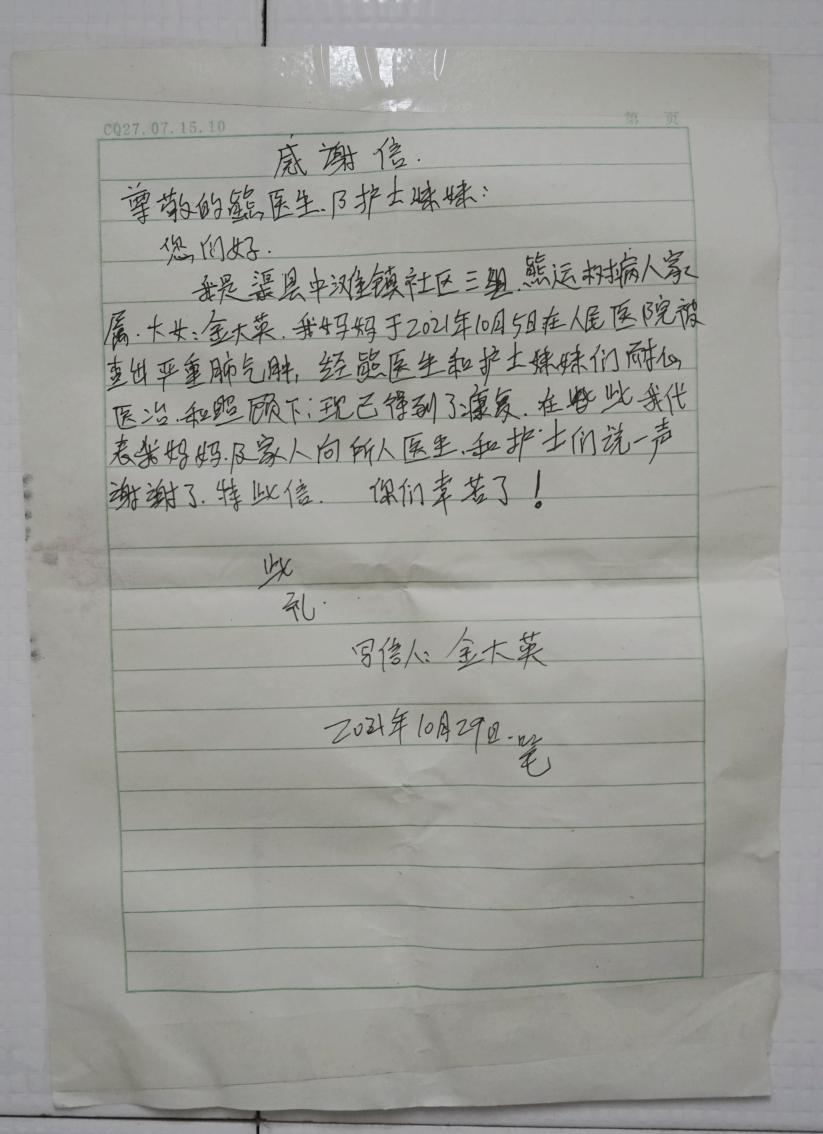 CQ27.07.15.10
第 页
感谢信.
尊敬的熊医生、及护士妹妹：
您们好.
我是渠县中滩镇社区三组.熊运树病人家
属.大女：金大英.我妈妈于2021年10月5日在人民医院被
查出严重肺气肿，经熊医生和护士妹妹们耐心
医治.和照顾下；现已得到了康复.在此我代
表我妈妈.及家人向所人医生、和护士们说一声
谢谢了.特此信. 你们幸苦了！
此
礼.
写信人：金大英
2021年10月29日.笔